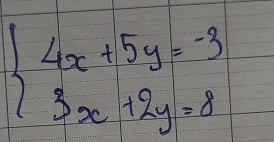 4x + 5y = -3
3x + 2y = 8